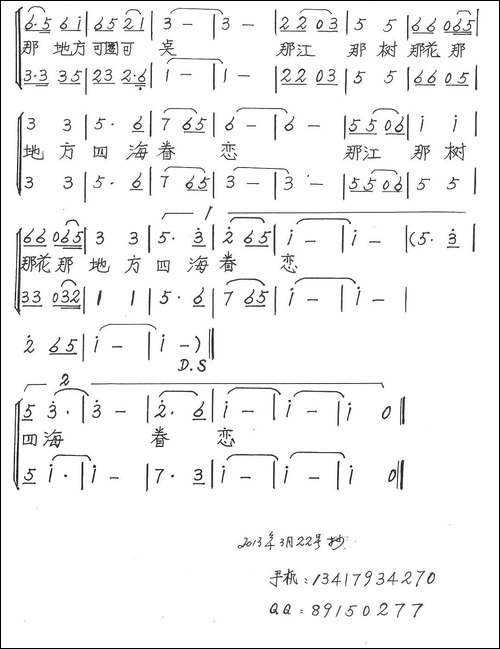 6·5 6i | 65 2i | 3 - | 3 - | 22 03 | 5 5 | 66 065 |
那 地方 可圈可 吴 那江 那 树 那花 那
3·3 35 | 23 2·6 | 1 - | 1 - | 22 03 | 5 5 | 66 05 |
3 3 | 5· 6 | 7 65 | 6 - | 6 - | 55 06 | i i |
地 方 四 海 眷 恋 那江 那 树
3 3 | 5· 6 | 7 65 | 3 - | 3 - | 55 06 | 5 5 |
1
66 065 | 3 3 | 5· 3 | 2 65 | i - | i - | (5· 3 |
那花 那 地 方 四 海 眷 恋
33 032 | 1 1 | 5· 6 | 7 65 | i - | i - |
2 65 | i - | i -) ||
D.S
2
5 3· | 3 - | 2· 6 | i - | i - | i 0 ||
四 海 眷 恋
5 i· | i - | 7· 3 | i - | i - | i 0 ||
2013年3月22号抄
手机:13417934270
QQ:89150277